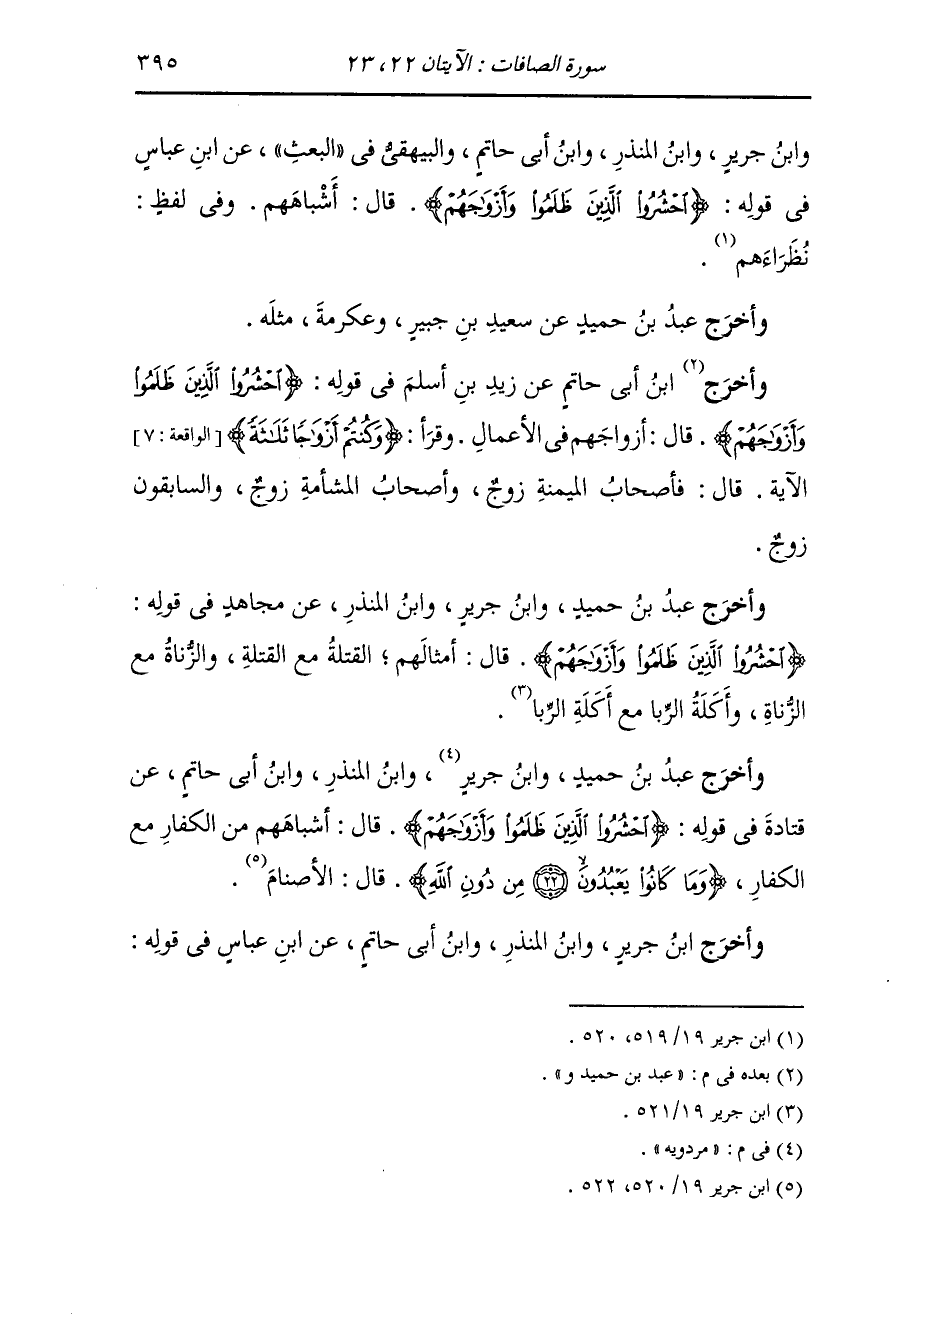 سورة الصافات : الآيتان ٢٢ ، ٢٣ ٣٩٥
وابنُ جريرٍ ، وابنُ المنذرِ ، وابنُ أبى حاتمٍ ، والبيهقىُّ فى «البعثِ» ، عن ابنِ عباسٍ
فى قولِه : ﴿ٱحْشُرُوا۟ ٱلَّذِينَ ظَلَمُوا۟ وَأَزْوَٰجَهُمْ﴾ . قال : أَشْباهَهم . وفى لفظٍ :
نُظَرَاءَهم(١) .
وأخرَج عبدُ بنُ حميدٍ عن سعيدِ بنِ جبيرٍ ، وعكرمةَ ، مثلَه .
وأخرَج(٢) ابنُ أبى حاتمٍ عن زيدِ بنِ أسلمَ فى قولِه : ﴿ٱحْشُرُوا۟ ٱلَّذِينَ ظَلَمُوا۟
وَأَزْوَٰجَهُمْ﴾ . قال : أزواجَهم فى الأعمالِ . وقرَأ : ﴿وَكُنتُمْ أَزْوَٰجًا ثَلَٰثَةً﴾ [الواقعة : ٧]
الآية . قال : فأصحابُ الميمنةِ زوجٌ ، وأصحابُ المشأمةِ زوجٌ ، والسابقون
زوجٌ .
وأخرَج عبدُ بنُ حميدٍ ، وابنُ جريرٍ ، وابنُ المنذرِ ، عن مجاهدٍ فى قولِه :
﴿ٱحْشُرُوا۟ ٱلَّذِينَ ظَلَمُوا۟ وَأَزْوَٰجَهُمْ﴾ . قال : أمثالَهم ؛ القتلةُ مع القتلةِ ، والزُّناةُ مع
الزُّناةِ ، وأَكَلَةُ الرِّبا مع أَكَلَةِ الرِّبا(٣) .
وأخرَج عبدُ بنُ حميدٍ ، وابنُ جريرٍ(٤) ، وابنُ المنذرِ ، وابنُ أبى حاتمٍ ، عن
قتادةَ فى قولِه : ﴿ٱحْشُرُوا۟ ٱلَّذِينَ ظَلَمُوا۟ وَأَزْوَٰجَهُمْ﴾ . قال : أشباهَهم من الكفارِ مع
الكفارِ ، ﴿وَمَا كَانُوا۟ يَعْبُدُونَۙ ۝٢٢ مِن دُونِ ٱللَّهِ﴾ . قال : الأصنامَ(٥) .
وأخرَج ابنُ جريرٍ ، وابنُ المنذرِ ، وابنُ أبى حاتمٍ ، عن ابنِ عباسٍ فى قولِه :
(١) ابن جرير ١٩/ ٥١٩، ٥٢٠ .
(٢) بعده فى م : « عبد بن حميد و» .
(٣) ابن جرير ١٩/ ٥٢١ .
(٤) فى م : « مردويه» .
(٥) ابن جرير ١٩/ ٥٢٠، ٥٢٢ .